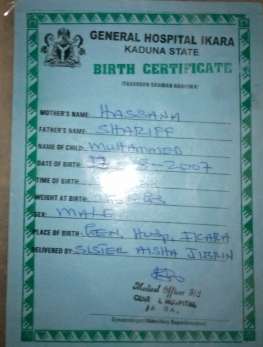 GENERAL HOSPITAL IKARA
KADUNA STATE
BIRTH CERTIFICATE
MOTHER'S NAME: HASSANA
FATHER'S NAME: SHARIFF
NAME OF CHILD: MUHAMMED
DATE OF BIRTH: 2007
TIME OF BIRTH:
WEIGHT AT BIRTH:
SEX: MALE
PLACE OF BIRTH: GEN. HOSP, IKARA
DELIVERED BY: SISTER AISHA JIBRIN
Medical Officer
GENERAL HOSPITAL